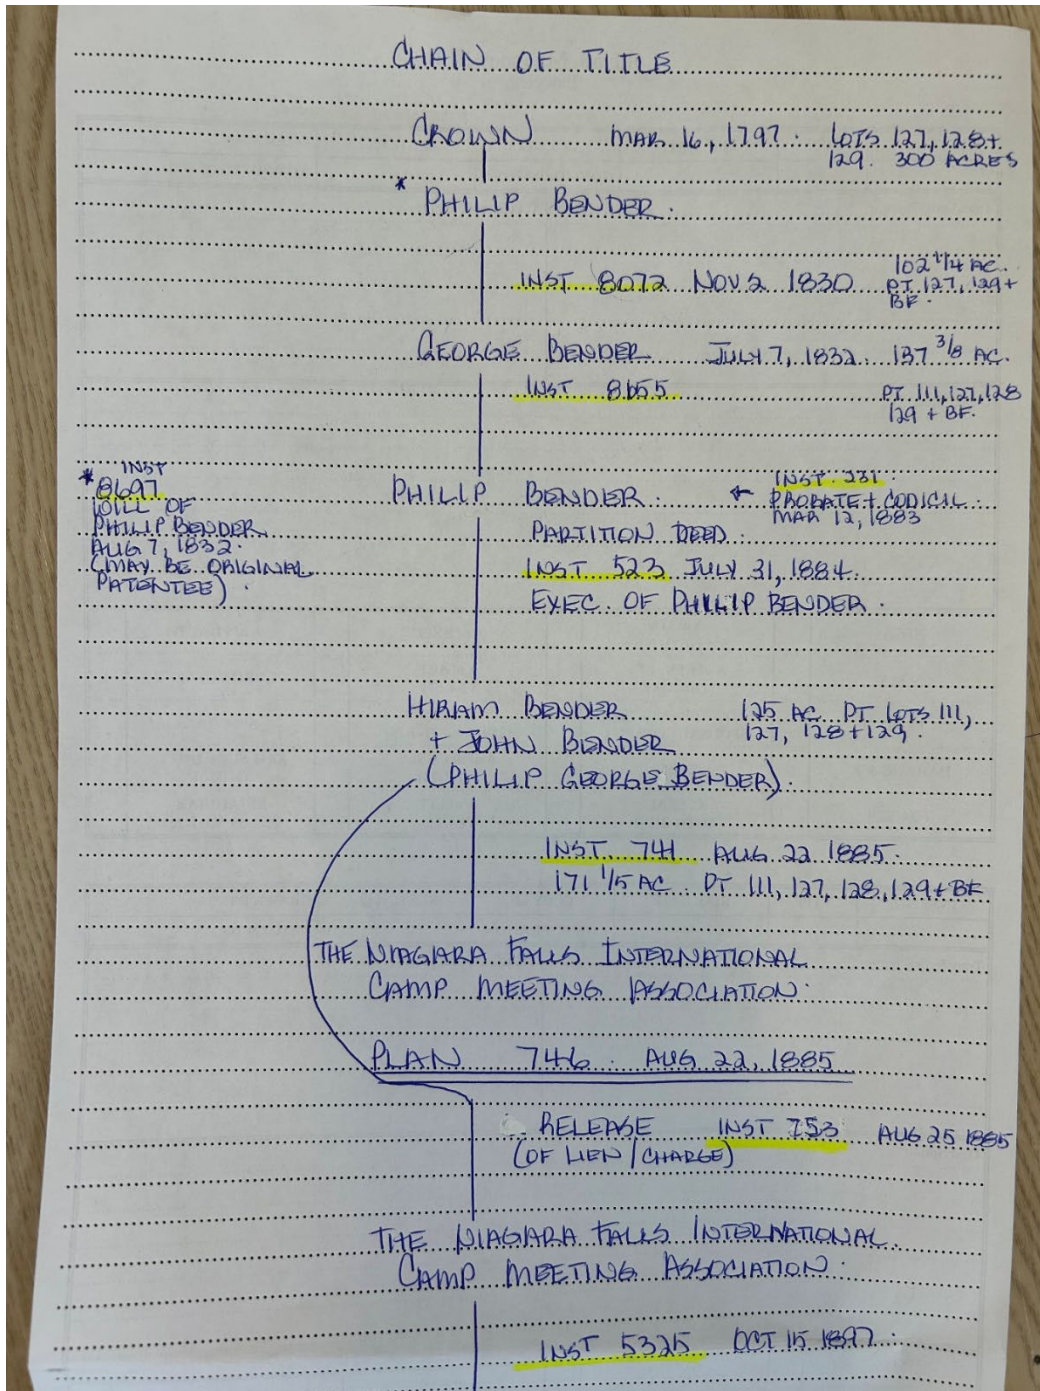 CHAIN OF TITLE
CROWN MAR 16, 1797. LOTS 127, 128+
129. 300 ACRES
* PHILIP BENDER.
102 1/4 AC.
INST 8072 NOV 2 1830 PT 127, 129+
BF.
GEORGE BENDER JULY 7, 1832. 137 3/8 AC.
INST 8655 PT 111, 127, 128
129 + BF.
* INST
8697
WILL OF
PHILIP BENDER
AUG 7, 1832.
(MAY BE ORIGINAL
PATENTEE).
PHILIP BENDER. ← INST. 231
PROBATE + CODICIL.
MAR 12, 1883
PARTITION DEED.
INST 523 JULY 31, 1884.
EXEC. OF PHILIP BENDER.
HIRAM BENDER 125 AC PT LOTS 111,
127, 128+129.
+ JOHN BENDER
(PHILIP GEORGE BENDER).
INST. 741 AUG 22 1885.
171 1/5 AC PT 111, 127, 128, 129+BF
THE NIAGARA FALLS INTERNATIONAL
CAMP MEETING ASSOCIATION.
PLAN 746. AUG 22, 1885
RELEASE INST 753 AUG 25 1885
(OF LIEN / CHARGE)
THE NIAGARA FALLS INTERNATIONAL.
CAMP MEETING ASSOCIATION.
INST 5325 OCT 15 1897.